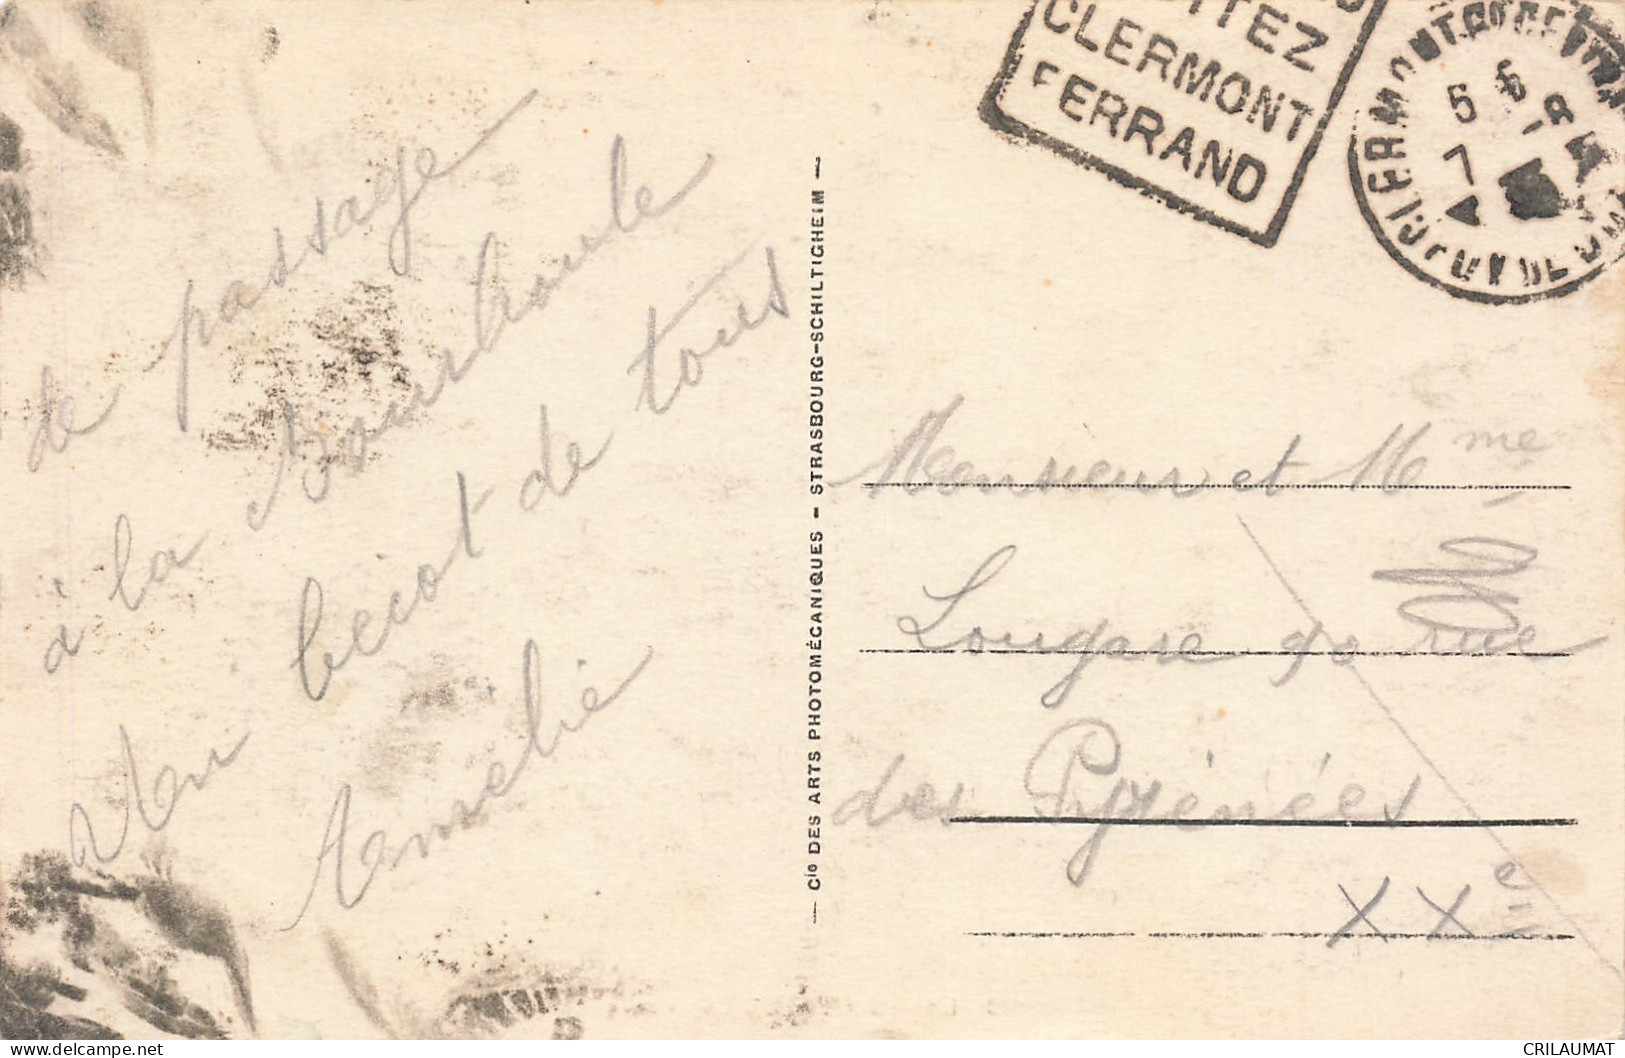 de passage
à la Bourboule
Un bécot de tous
Amélie
— Cie DES ARTS PHOTOMÉCANIQUES — STRASBOURG-SCHILTIGHEIM —
ITEZ
CLERMONT
FERRAND
5 6
7
PUY DE
Monsieur et Mme
rue
des Pyrénées
XXe
CRILAUMAT